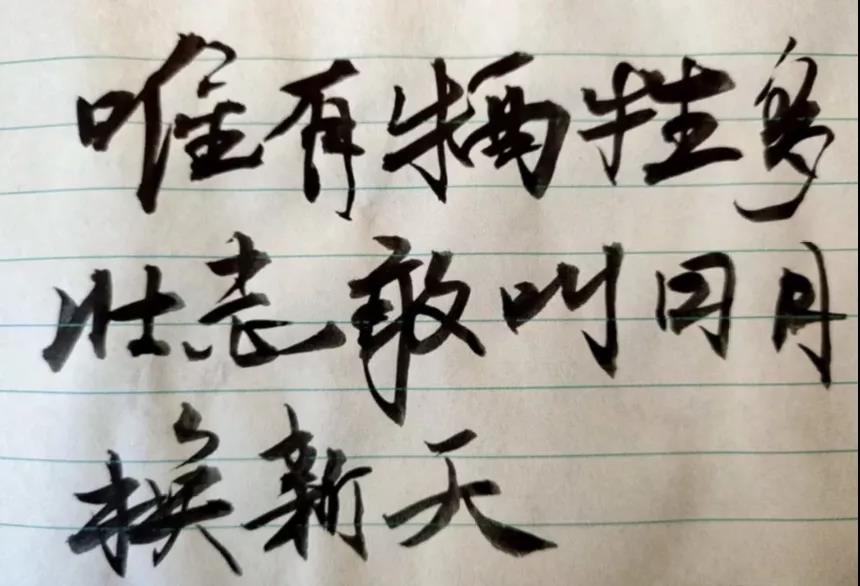 唯有牺牲多
壮志敢叫日月
换新天